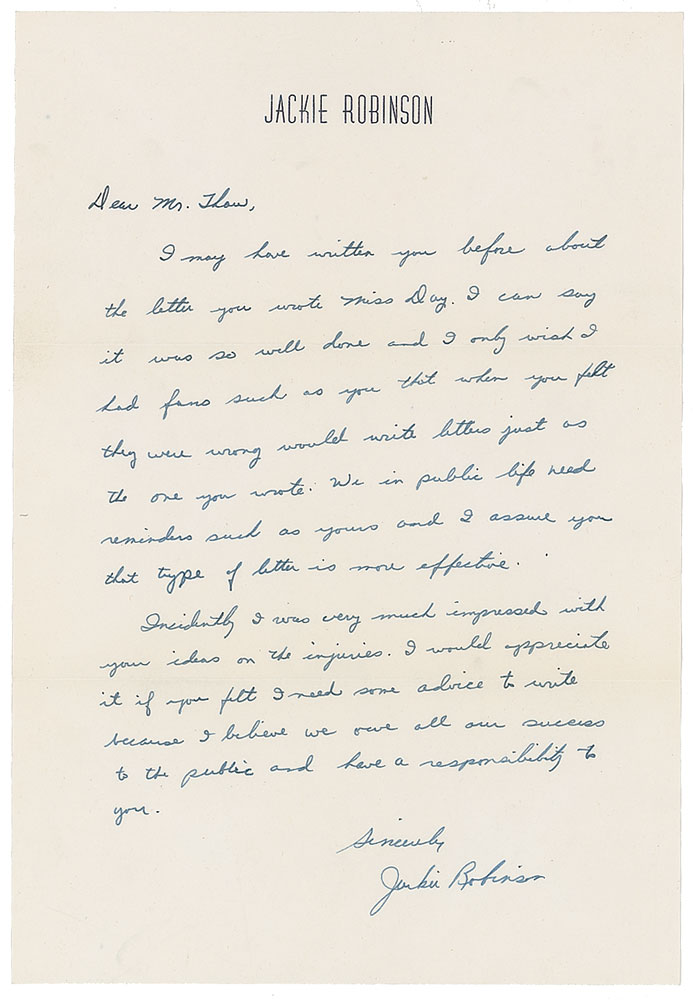 JACKIE ROBINSON
Dear Mr. Thaw,
I may have written you before about
the letter you wrote Miss Day. I can say
it was so well done and I only wish I
had fans such as you that when you felt
they were wrong would write letters just as
the one you wrote. We in public life need
reminders such as yours and I assure you
that type of letter is more effective.
Incidently I was very much impressed with
your ideas on the injuries. I would appreciate
it if you felt I need some advice to write
because I believe we owe all our success
to the public and have a responsibility to
you.
Sincerely
Jackie Robinson